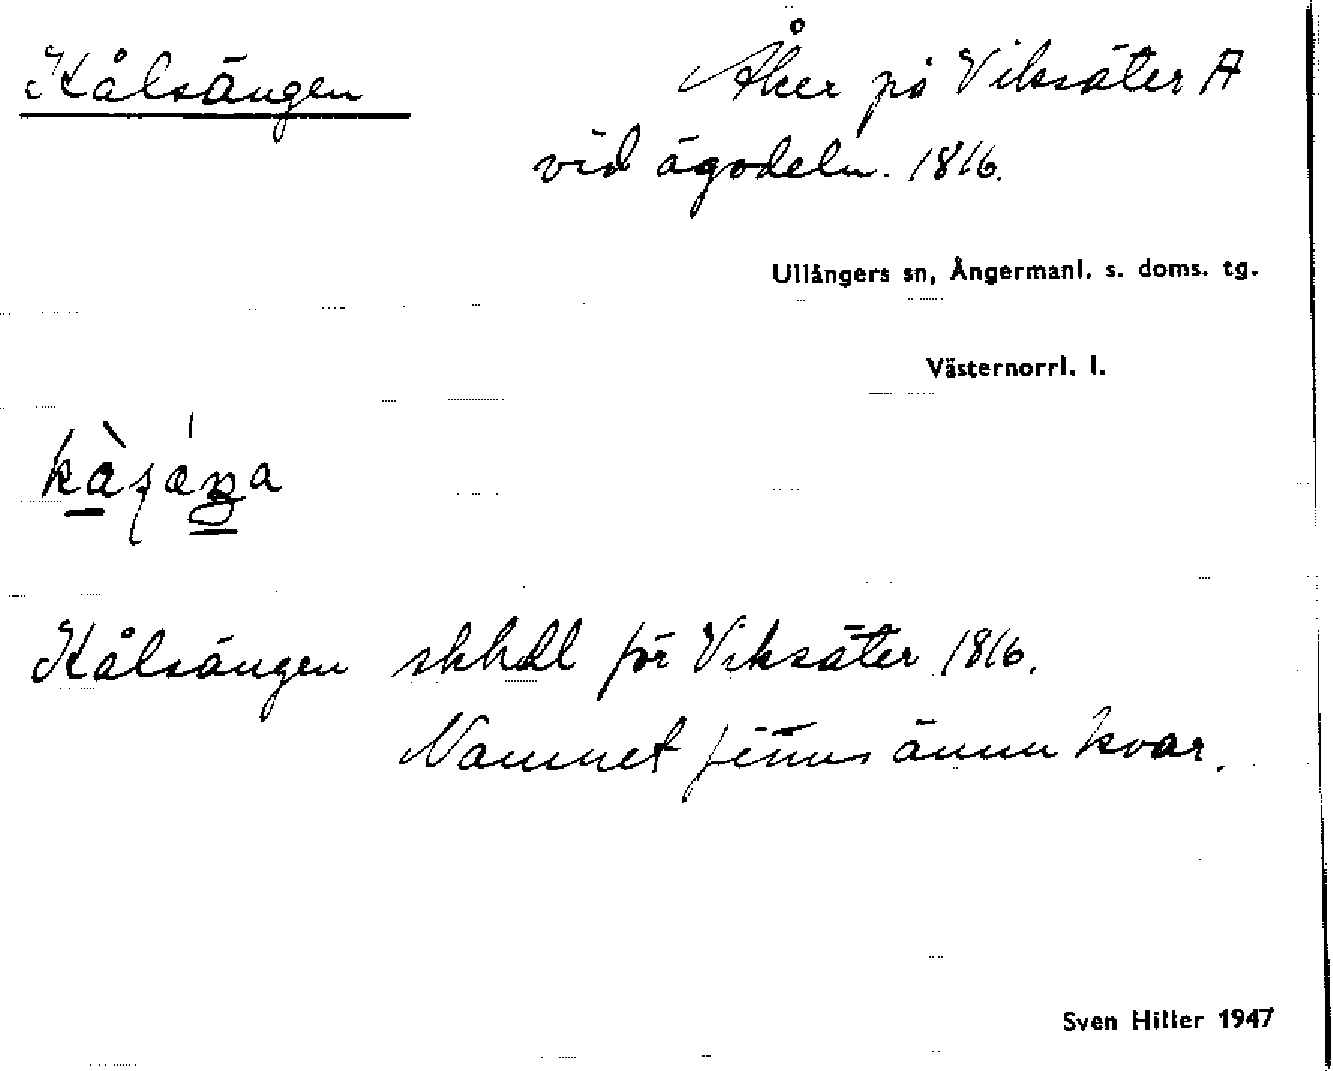 Kålsängen
Åker på Viksäter A
vid ägodeln. 1816.
Ullångers sn, Ångermanl. s. doms. tg.
Västernorrl. l.
Kålsängen skhdl för Viksäter 1816.
Namnet finns ännu kvar.
Sven Hiller 1947